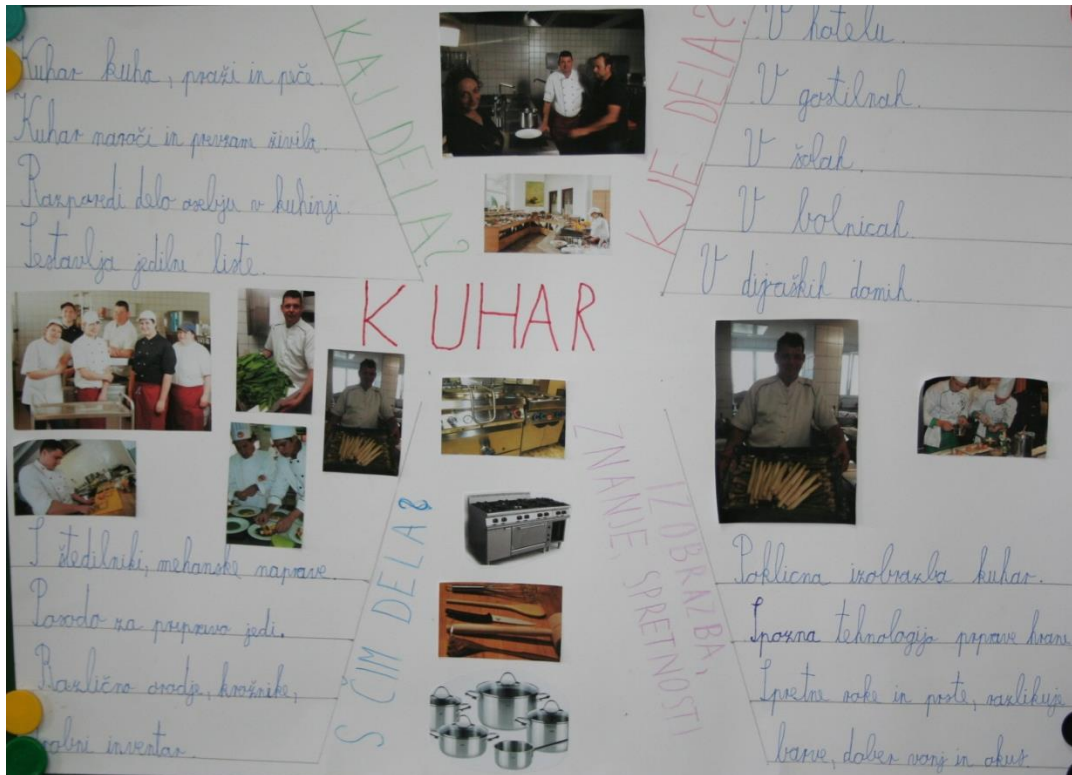 KAJ DELA?
Kuhar kuha, praži in peče.
Kuhar naroči in prevzam živila.
Razporedi delo osebju v kuhinji.
Sestavlja jedilne liste.
KJE DELA?
V hotelu.
V gostilnah.
V šolah.
V bolnicah.
V dijaških domih.
KUHAR
S ČIM DELA?
S štedilniki, mehanske naprave.
Posodo za pripravo jedi.
Različno orodje, krožnike,
drobni inventar.
IZOBRAZBA,
ZNANJE, SPRETNOSTI
Poklicna izobrazba kuhar.
Spozna tehnologijo priprave hrane
Spretne roke in prste, razlikuje
barve, dober vonj in okus.